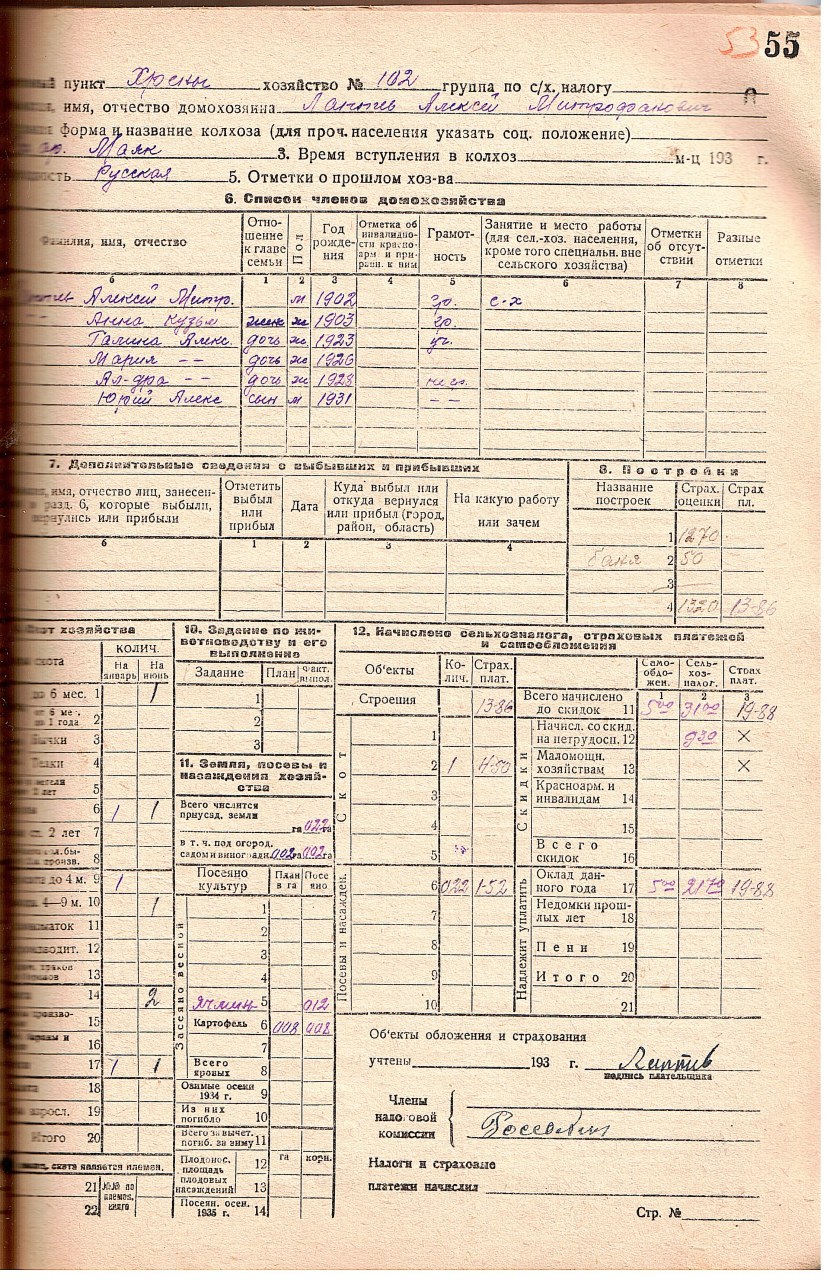 53 55
пункт Хрены хозяйство № 102 группа по с/х. налогу
имя, отчество домохозяина Лаптев Алексей Митрофанович
форма и название колхоза (для проч. населения указать соц. положение)
Маяк 3. Время вступления в колхоз м-ц 193 г.
Русская 5. Отметки о прошлом хоз-ва
6. Список членов домохозяйства
Фамилия, имя, отчество Отношение к главе семьи Пол Год рождения Отметка об инвалидности красноарм. и приравн. к ним Грамотность Занятие и место работы (для сел.-хоз. населения, кроме того специальн. вне сельского хозяйства) Отметки об отсутствии Разные отметки
б 1 2 3 4 5 6 7 8
Алексей Митр. м 1902 гр. с-х
Анна Кузьм жена ж 1903 гр.
Галина Алекс. дочь ж 1923 уч.
Мария -- дочь ж 1926
Ал-дра -- дочь ж 1928
Юрий Алекс сын м 1931 --
7. Дополнительные сведения о выбывших и прибывших
8. Постройки
имя, отчество лиц, занесен- разд. 6, которые выбыли, вернулись или прибыли Отметить выбыл или прибыл Дата Куда выбыл или откуда вернулся или прибыл (город, район, область) На какую работу или зачем
Название построек Страх. оценки Страх пл.
б 1 2 3 4
1 1270
баня 2 50
3
4 1320 13-86
скот хозяйства
КОЛИЧ.
На январь На июнь
до 6 мес. 1 1
2
Бычки 3
Телки 4
5
6 1 1
ст. 2 лет 7
8
до 4 м. 9 1
4—9 м. 10 1
маток 11
12
13
14 2
15
16
17 1 1
18
взросл. 19
Итого 20
скота является племен.
21 №№ по племен. книге
22
10. Задание по животноводству и его выполнение
Задание План Факт. выпол.
1
2
3
11. Земля, посевы и насаждения хозяйства
Всего числится приусад. земли
га 0,22 га
в т. ч. под огород. садом и виноградн. 0,02 га 0,02 га
Засеяно весной
Посеяно культур План в га Посеяно
1
2
3
4
Ячмень 5 0,12
Картофель 6 0,08 0,08
7
Всего яровых 8
Озимые осени 1934 г. 9
Из них погибло 10
Всего за вычет. погиб. за зиму 11
Плодонос. площадь плодовых насаждений га корн.
12
13
Посеян. осен. 1935 г. 14
12. Начислено сельхозналога, страховых платежей и самообложения
Об'екты Колич. Страх. плат.
Строения 13-86
Скот
1
2 1 4-50
3
4
5
Посевы и насажден.
6 0,22 1-52
7
8
9
10
Самообложен. Сельхозналог. Страх плат.
1 2 3
Всего начислено до скидок 11 5 00 31 00 19-88
Скидки
Начисл. со скид. на нетрудосп. 12 9 30 ×
Маломощн. хозяйствам 13 ×
Красноарм. и инвалидам 14
15
Всего скидок 16
Надлежит уплатить
Оклад данного года 17 5 00 21 70 19-88
Недоимки прошлых лет 18
Пени 19
Итого 20
21
Об'екты обложения и страхования
учтены 193 г. Лаптев
подпись плательщика
Члены налоговой комиссии
Налоги и страховые
платежи начислил
Стр. №